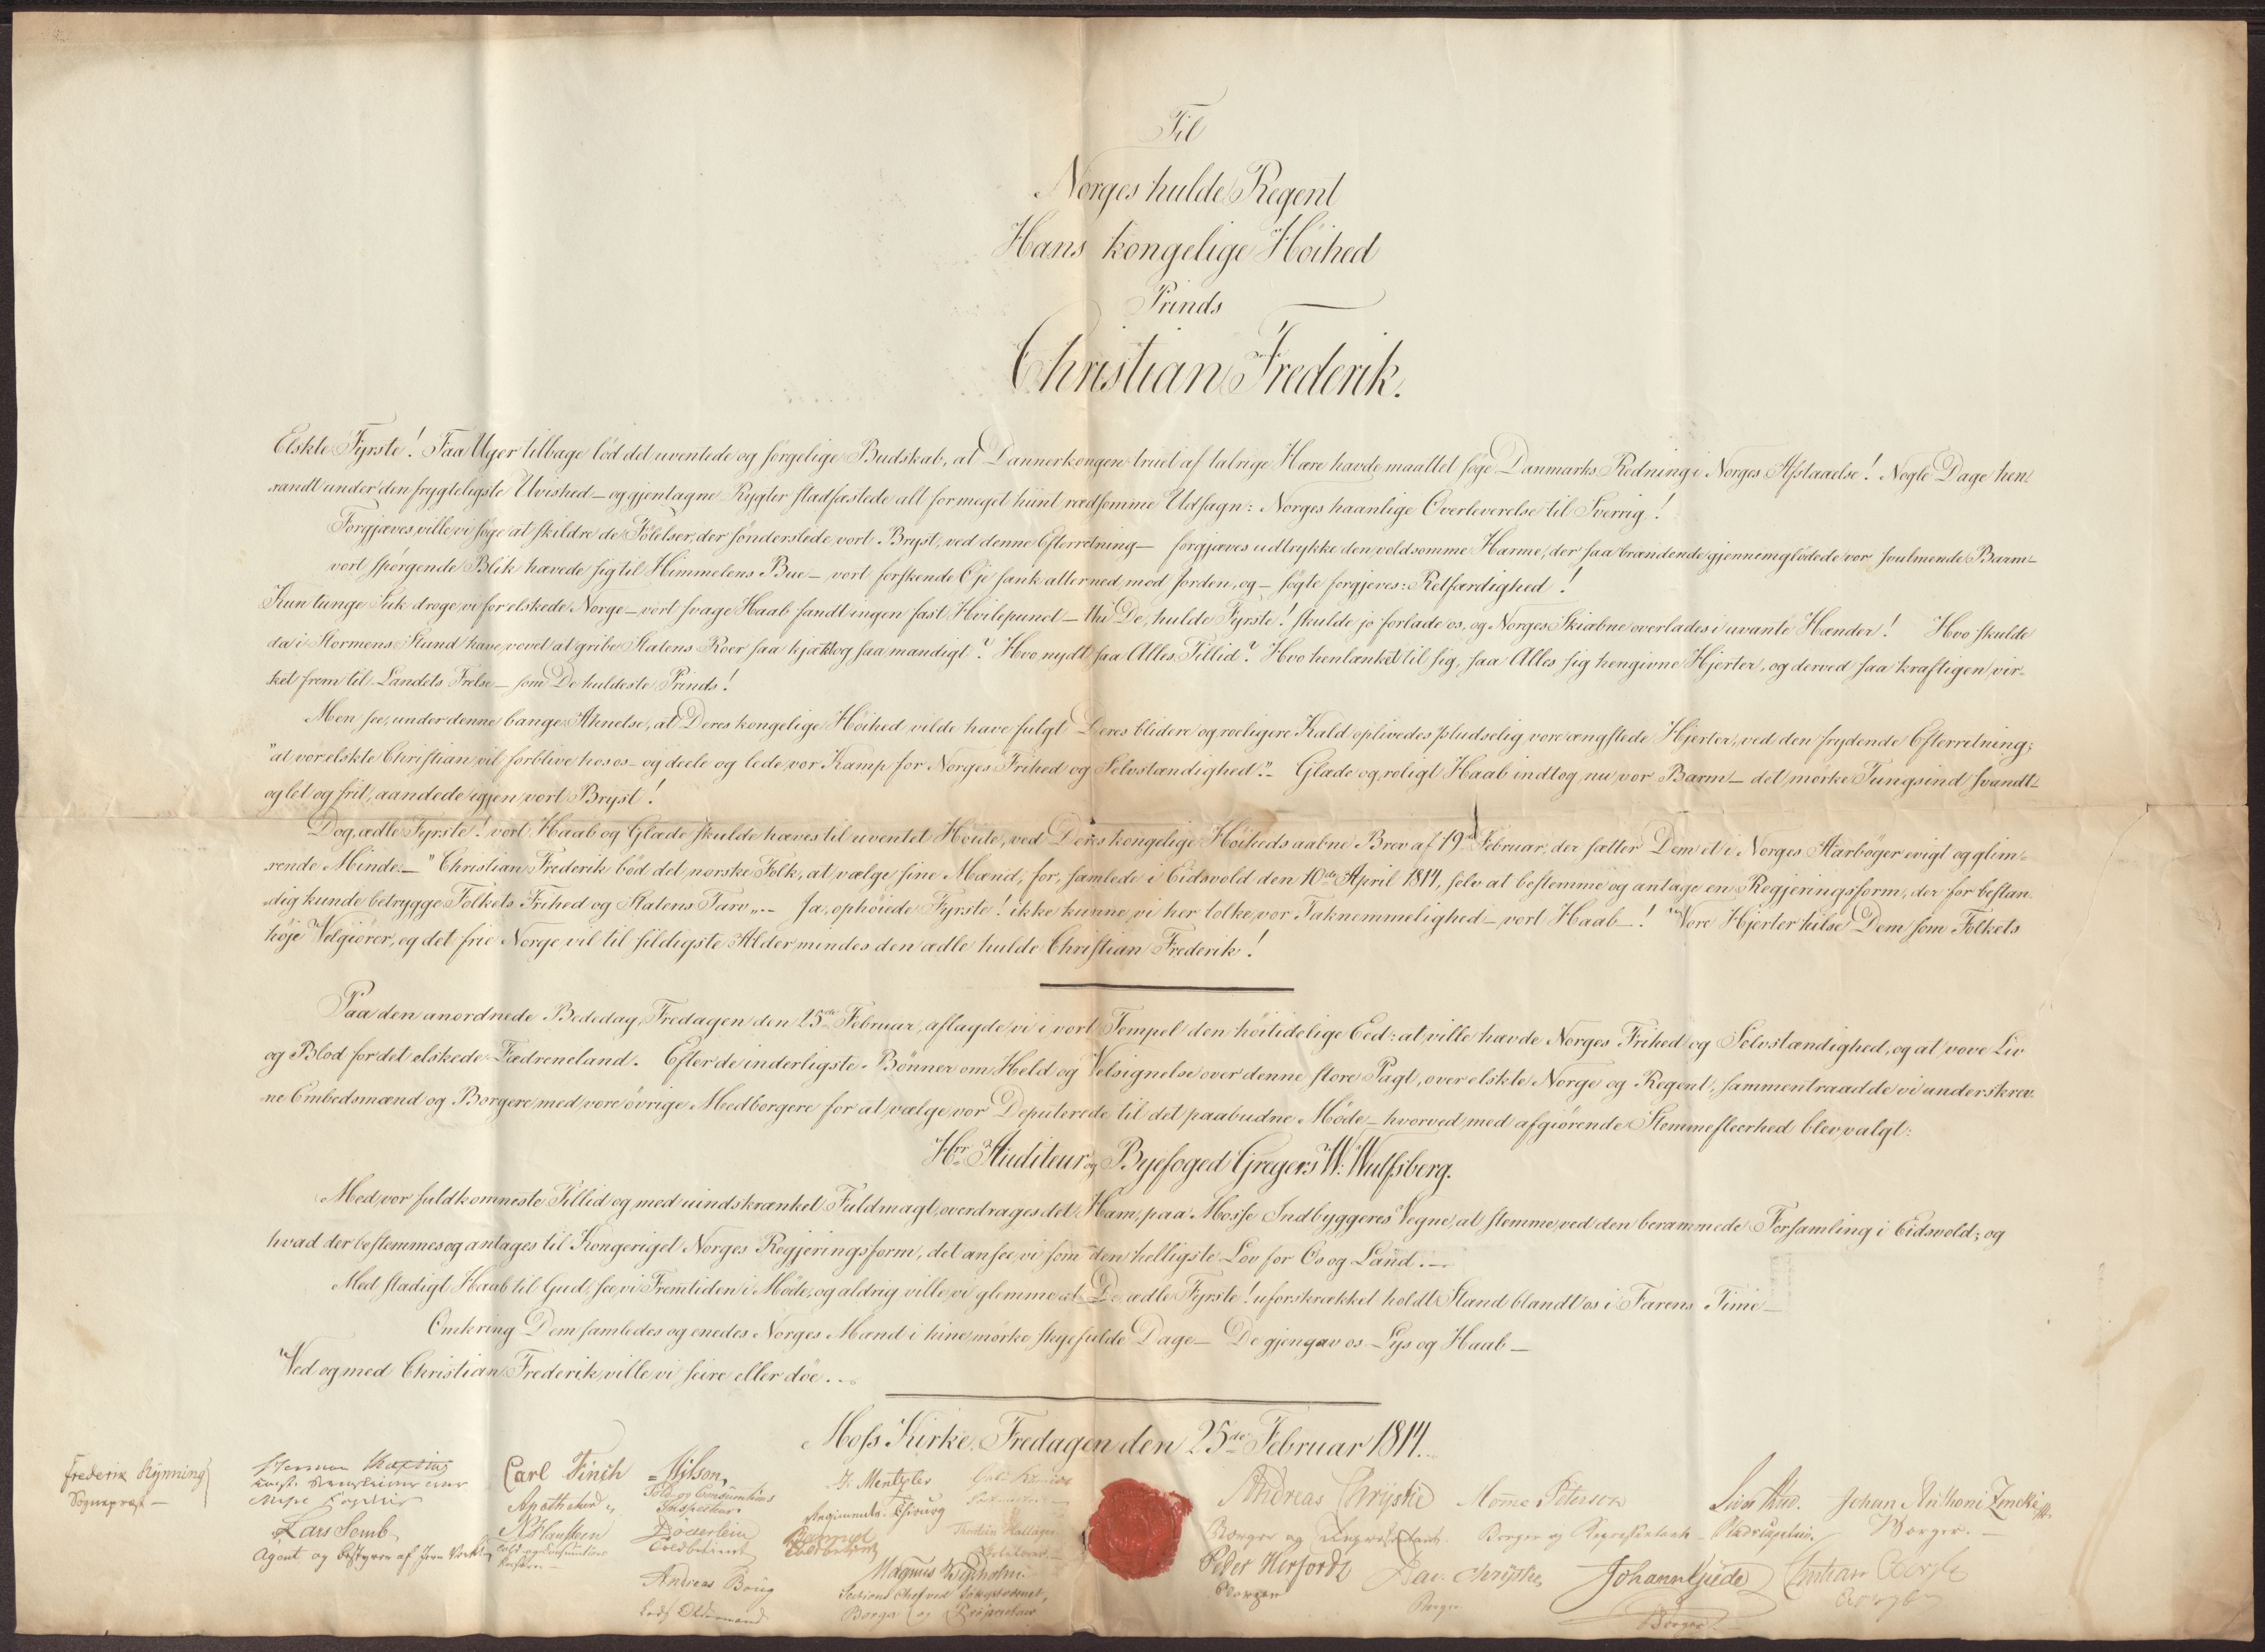 Til
Norges hulde Regent
Hans kongelige Höihed
Prinds
Christian Frederik.
Elskte Fyrste! Faa Uger tilbage löd det uventede og sörgelige Budskab, at Dannerkongen truet af talrige Hære havde maattet söge Danmarks Redning i Norges Afstaaelse! Nogle Dage hen-
randt under den frygteligste Uvished – og gjentagne Rygter stadfæstede alt for meget hiint rædsomme Udsagn: Norges haanlige Overleverelse til Sverrig!
Forgjæves ville vi söge at skildre de Fölelser, der sönderslede vort Bryst, ved denne Efterretning – forgjæves udtrykke den voldsomme Harme, der saa brændende gjennemglödede vor svulmende Barm –
vort spörgende Blik hævede sig til Himmelens Bue – vort forskende Öje sank atter ned mod Jorden, og – sögte forgjeves: Retfærdighed!
Kun tunge Suk droge vi for elskede Norge – vort svage Haab fandt ingen fast Hvilepunct – thi De, hulde Fyrste! skulde jo forlade os, og Norges Skiæbne overlades i uvante Hænder! Hvo skulde
da i Stormens Stund have vovet at gribe Statens Roer saa kjækt og saa mandigt? Hvo nydt saa Alles Tillid? Hvo henlænket til sig, saa Alles sig hengivne Hjerter, og derved saa kraftigen vir-
ket frem til Landets Frelse – som De huldeste Prinds!
Men see, under denne bange Ahnelse, at Deres kongelige Höihed vilde have fulgt Deres blidere og roeligere Kald oplivedes pludselig vore ængstede Hjerter, ved den frydende Efterretning;
"at vor elskte Christian vil forblive hos os – og deele og lede vor Kamp for Norges Frihed og Selvstændighed." – Glæde og roligt Haab indtog nu vor Barm – det mörke Tungsind svandt –
og let og frit, aandede igjen vort Bryst!
Dog, ædle Fyrste! vort Haab og Glæde skulde hæves til uventet Höide, ved Deres kongelige Höiheds aabne Brev af 19de Februar, der sætter Dem et i Norges Aarböger evigt og glim-
rende Minde. – "Christian Frederik böd det norske Folk, at vælge sine Mænd, for, samlede i Eidsvold den 10de April 1814, selv at bestemme og antage en Regjeringsform, der for bestan-
dig kunde betrygge Folkets Frihed og Statens Tarv". – Ja, ophöiede Fyrste! ikke kunne vi her tolke vor Taknemmelighed – vort Haab –! Vore Hjerter hilse Dem som Folkets
höje Velgiörer, og det frie Norge vil til sildigste Alder mindes den ædle hulde Christian Frederik!
Paa den anordnede Bededag, Fredagen den 25de Februar, aflagde vi i vort Tempel den höitidelige Eed: at ville hævde Norges Frihed og Selvstændighed, og at vove Liv
og Blod for det elskede Fædreneland. Efter de inderligste Bönner om Held og Velsignelse over denne store Pagt, over elskte Norge og Regent, sammentraadde vi underskrev-
ne Embedsmænd og Borgere med vore övrige Medborgere for at vælge vor Deputerede til det paabudne Möde – hvorved med afgiörende Stemmefleerhed blev valgt:
Hrr Auditeur og Byefoged Gregers W: Wulfsberg.
Med vor fuldkomneste Tillid og med uindskrænket Fuldmagt, overdrages det Ham, paa Mosse Indbyggeres Vegne, at stemme ved den berammede Forsamling i Eidsvold; og
hvad der bestemmes og antages til Kongeriget Norges Regjeringsform, det ansee vi som den helligste Lov for Os og Land. –
Med stadigt Haab til Gud, see vi Fremtiden i Möde, og aldrig ville vi glemme at De ædle Fyrste! uforskrækket holdt Stand blandt os i Farens Time –
Omkring Dem samledes og enedes Norges Mænd i hine mörke skyefulde Dage – De gjengav os Lys og Haab –
Ved og med Christian Frederik ville vi seire eller döe. –
Moss Kirke, Fredagen den 25de Februar 1814.
Frederik Rÿnning
Sognepræst –
Lars Semb
Agent og bestyrer af Jern Verket
Carl Finch
Apotheker
Wilson,
Told og Consumtions
Inspecteur.
Toldbetient
Andreas Boug
Lods Oldermand
Mentzler
Regiments Chirurg
Magnus
Borger og
Andreas Chrystie
Borger og Repræsentant.
Peder Herfordt
Borger
Mome Peterson
Borger og Repræsentant –
Dav: Chrÿstie
Borger
Johan Gude
Borger
Johan Anthoni Zincke
Borger. –
Christian